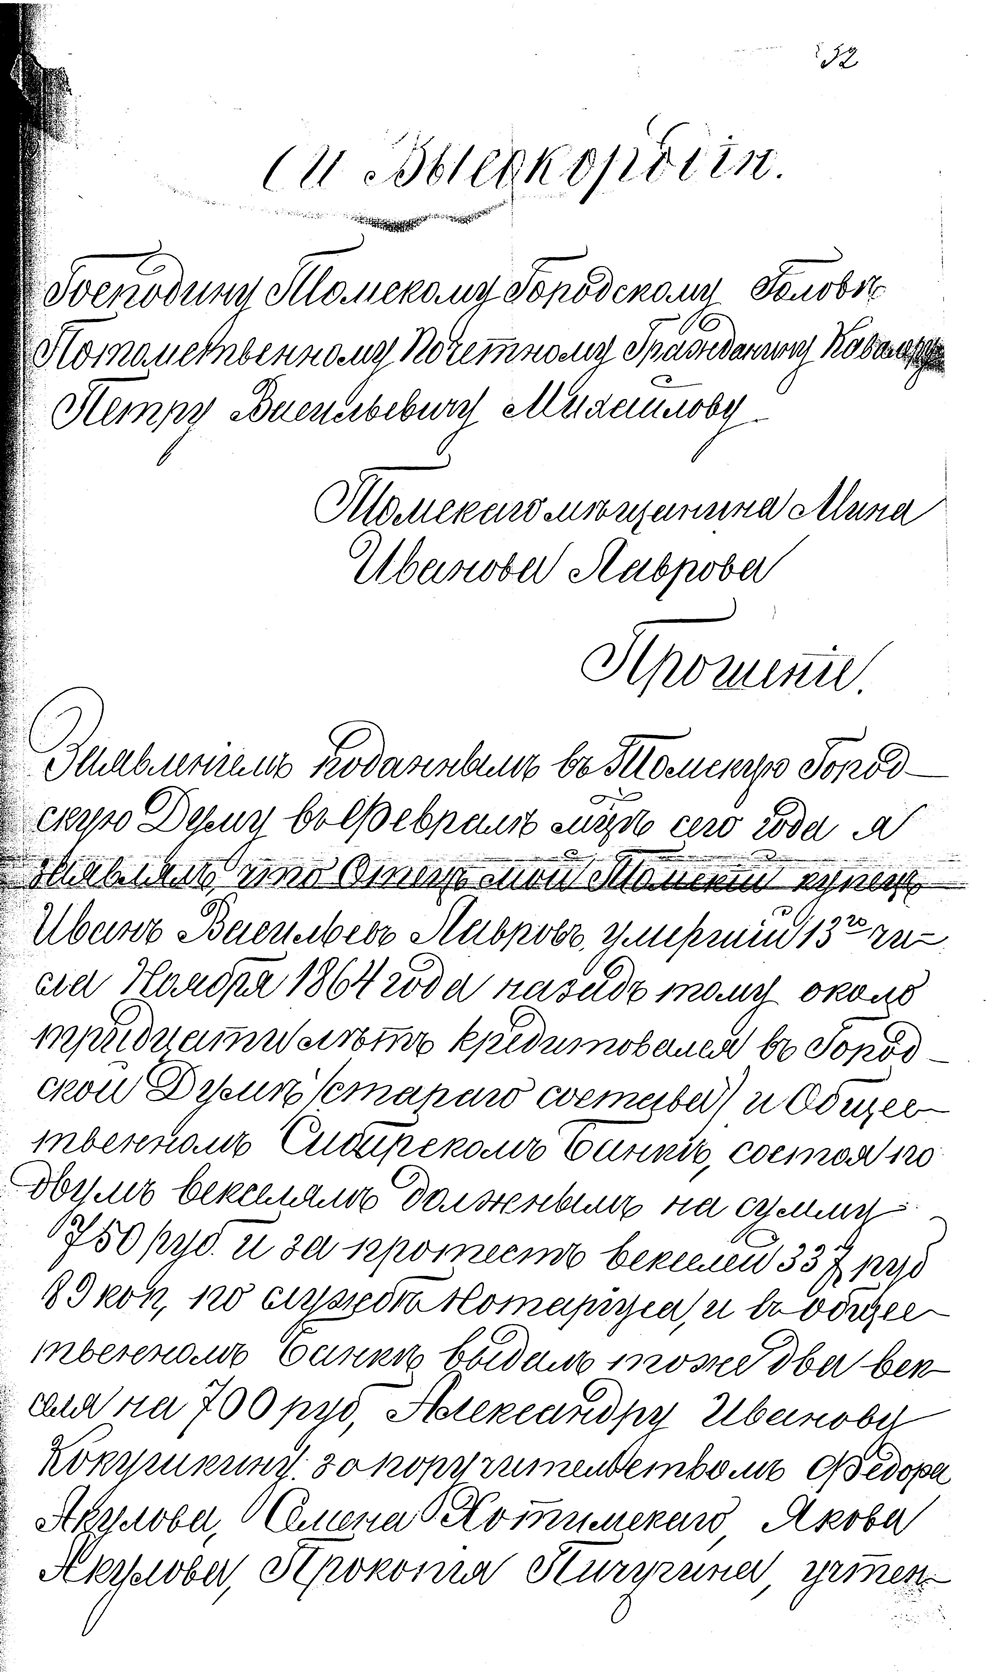 52
Господину Томскому Городскому Головѣ
Потомственному Почетному Гражданину Кавалеру
Петру Васильевичу Михайлову
Томскаго мѣщанина Мина
Иванова Лаврова
Прошеніе.
Заявленіемъ поданнымъ въ Томскую Город-
скую Думу въ Февралѣ мцѣ сего года я
заявлялъ, что Отецъ мой Томскій купецъ
Иванъ Васильевъ Лавровъ, умершій 13го чи-
сла Ноября 1864 года назадъ тому около
тридцати лѣтъ кредитовался въ Город-
ской Думѣ (стараго состава) и Общес-
твенномъ Сибирскомъ Банкѣ, состоя по
двумъ векселямъ должнымъ на сумму
750 руб. и за протестъ векселей 337 руб
89 коп, по службѣ Нотаріуса, и въ общес-
твенномъ Банкѣ выдалъ тоже два век-
селя на 700 руб, Александру Иванову
Кокушкину за поручительствомъ Федора
Акулова, Семена Хотимскаго, Якова
Акулова, Прокопія Пичугина, учтен-